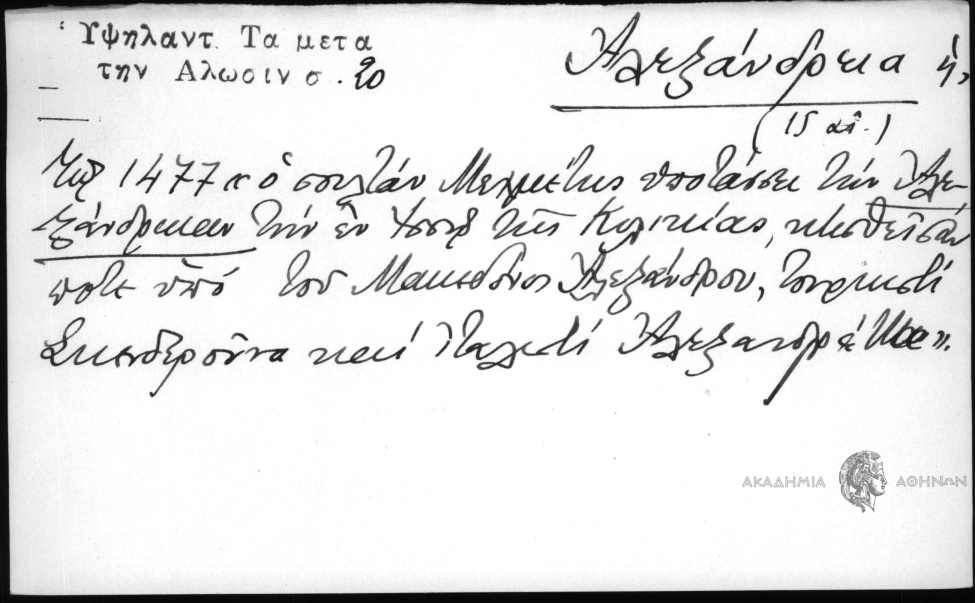 Ὑψηλαντ. Τα μετα
την Αλωσιν σ. 20
Ἀλεξάνδρεια ἡ,
(15 αἰ.)
Τῷ 1477 « ὁ σουλτὰν Μεχμέτης ὑποτάσσει τὴν Ἀλε-
ξάνδρειαν τὴν ἐν Ἰσσῷ τῆς Κιλικίας, κτισθεῖσάν
ποτε ὑπὸ τοῦ Μακεδόνος Ἀλεξάνδρου, τουρκιστὶ
Σκενδεροῦνα καὶ Ἰταλιστὶ Ἀλεξανδρέττα».
ΑΚΑΔΗΜΙΑ ΑΘΗΝΩΝ